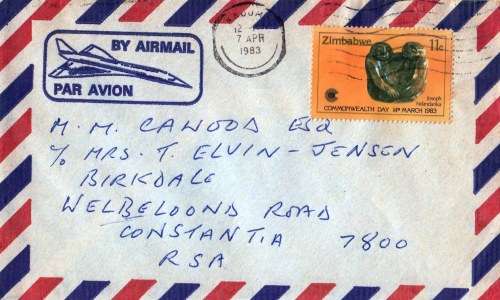 BY AIRMAIL
PAR AVION
12
7 APR
1983
Zimbabwe 11c
Joseph
Ndandarika
COMMONWEALTH DAY 14th MARCH 1983
M. M. CAWOOD ESQ
c/o MRS. T. ELVIN-JENSEN
BIRKDALE
WELBELOOND ROAD
CONSTANTIA 7800
RSA